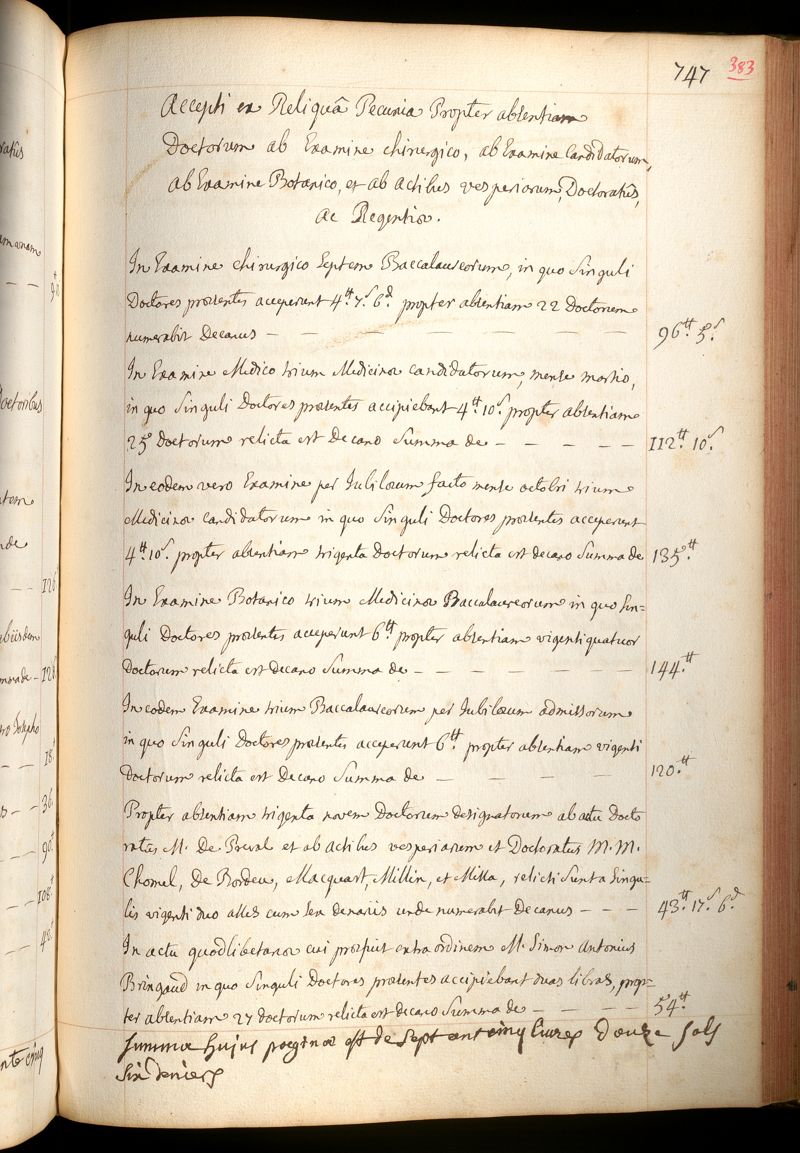 747 383
Accepti ex Reliquâ Pecunia Propter absentiam
Doctorum ab Examine chirurgico, ab Examine Candidatorum,
ab Examine Botanico, et ab actibus vesperiarum, Doctoratûs,
ac Regentiæ.
In Examine chirurgico septem Baccalaureorum, in quo singuli
Doctores præsentes acceperunt 4.tt 7.s 6.d propter absentiam 22 Doctorum
numerabit Decanus — — — — — — — 96.tt 5.s
In Examine Medico trium Medicinæ candidatorum, mense martio,
in quo singuli Doctores præsentes accipiebant 4.tt 10.s propter absentiam
25 Doctorum relicta est Decano summa de — — — — — 112.tt 10.s
In eodem vero Examine per Jubilæum facto mense octobri trium
Medicinæ candidatorum in quo singuli Doctores præsentes acceperunt
4.tt 10.s propter absentiam trigenta Doctorum relicta est decano summa de 135.tt
In Examine Botanico trium Medicinæ Baccalaureorum in quo sin=
guli Doctores præsentes acceperunt 6.tt propter absentiam vigentiquatuor
Doctorum relicta est decano summa de — — — — — — 144.tt
In eodem Examine trium Baccalaureorum per Jubilæum admissorum
in quo singuli Doctores præsentes acceperunt 6.tt propter absentiam vigenti
Doctorum relicta est Decano summa de — — — — — 120.tt
Propter absentiam trigenta novem Doctorum designatorum ab actu docto
ratûs M. De Preval et ab actibus vesperiarum et Doctoratus M.M.
Chomel, De Bordeu, Macquart, Millin, et Missa, relicti sunt a singu=
lis vigenti duo asses cum sex denariis unde numerabit Decanus — — — 43.tt 17.s 6.d
In actu quodlibetario cui præfuit extra ordinem M. Simon Antonius
Bringaud in quo singuli Doctores præsentes accipiebant duas libras, prop=
ter absentiam 27 doctorum relicta est decano summa de — — — — — 54.tt
summa hujus paginæ est de sept cent cinq livres douze sols
six deniers